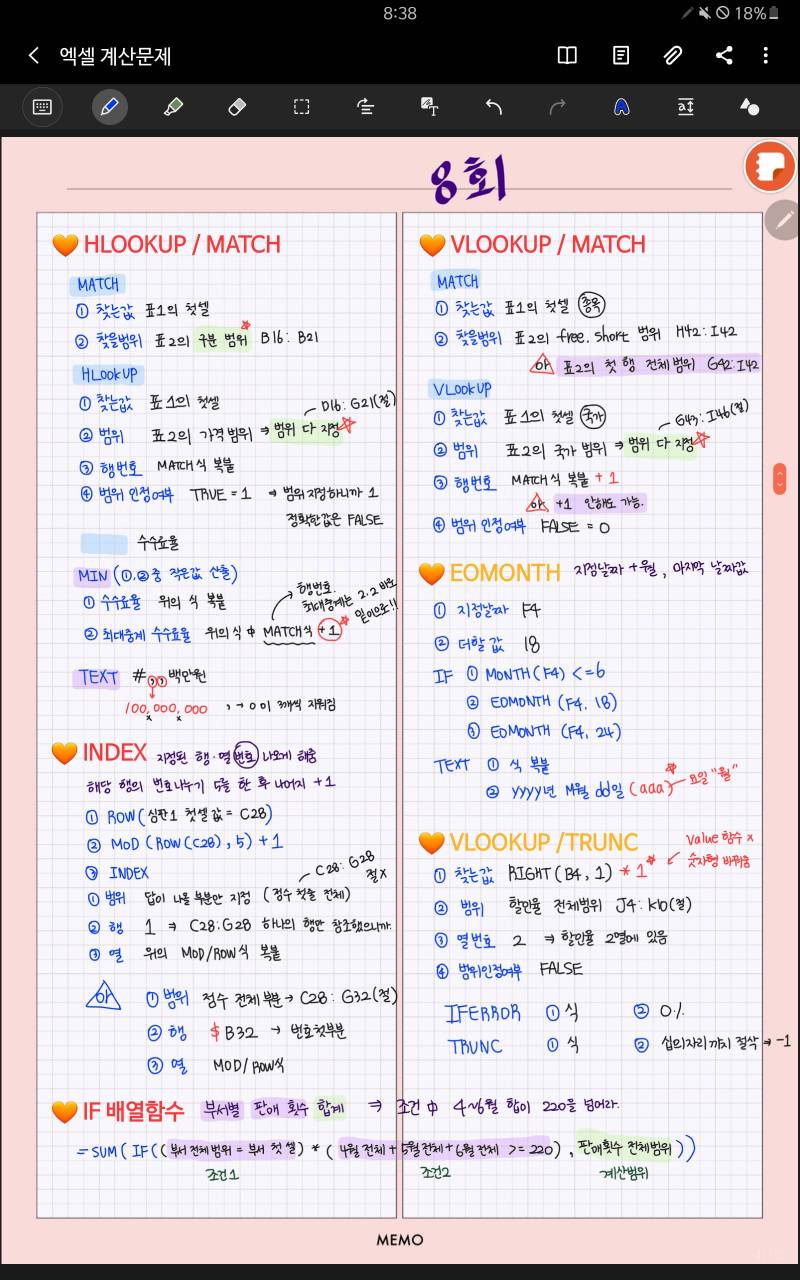 8:38
18%
엑셀 계산문제
8회
HLOOKUP / MATCH
MATCH
① 찾는값 표1의 첫셀
② 찾을범위 표2의 구분 범위 B16: B21
HLOOKUP
① 찾는값 표1의 첫셀
D16: G21(절)
② 범위 표2의 가격범위 ⇒ 범위 다 지정
③ 행번호 MATCH식 복붙
④ 범위 인정여부 TRUE = 1 ⇒ 범위지정하니까 1
정확한값은 FALSE
수수료율
MIN (①,②중 작은값 산출)
① 수수료율 위의 식 복붙
행번호.
최대중계는 2.2 바로
밑이므로!!
② 최대중계 수수료율 위의식 中 MATCH식 +1
TEXT #,,백만원
100,000,000 , → 0이 3개씩 지워짐
INDEX 지정된 행·열 번호 나오게 해줌
해당 행의 번호나누기 5를 한 후 나머지 +1
① ROW(심판1 첫셀값 = C28)
② MOD (ROW(C28), 5) +1
③ INDEX
C28: G28
절X
① 범위 답이 나올 부분만 지정 (점수 첫줄 전체)
② 행 1 ⇒ C28:G28 하나의 행만 참조했으니까.
③ 열 위의 MOD/ROW식 복붙
or ① 범위 점수 전체부분 → C28: G32(절)
② 행 $B32 → 번호첫부분
③ 열 MOD/ROW식
VLOOKUP / MATCH
MATCH
① 찾는값 표1의 첫셀 종목
② 찾을범위 표2의 free, short 범위 H42: I42
or 표2의 첫 행 전체범위 G42: I42
VLOOKUP
① 찾는값 표1의 첫셀 국가
G43: I46(절)
② 범위 표2의 국가 범위 ⇒ 범위 다 지정
③ 행번호 MATCH식 복붙 +1
or +1 안해도 가능.
④ 범위 인정여부 FALSE = 0
EOMONTH 지정날짜 +월, 마지막 날짜값
① 지정날짜 F4
② 더할 값 18
IF ① MONTH(F4) <=6
② EOMONTH (F4, 18)
③ EOMONTH (F4, 24)
TEXT ① 식 복붙
② yyyy년 M월 dd일 (aaa) 요일 "월"
VLOOKUP /TRUNC
Value 함수 x
숫자형 바꿔줌
① 찾는값 RIGHT(B4, 1) *1
② 범위 할인율 전체범위 J4: K10(절)
③ 열번호 2 ⇒ 할인율 2열에 있음
④ 범위인정여부 FALSE
IFERROR ① 식 ② 0%
TRUNC ① 식 ② 십의자리까지 절삭 ⇒ -1
IF 배열함수 부서별 판매 횟수 합계 ⇒ 조건 中 4~6월 합이 220을 넘어라.
= SUM( IF( (부서 전체범위 = 부서 첫 셀) * ( 4월 전체 + 5월 전체 + 6월 전체 >= 220) , 판매횟수 전체범위 ))
조건1 조건2 계산범위
MEMO